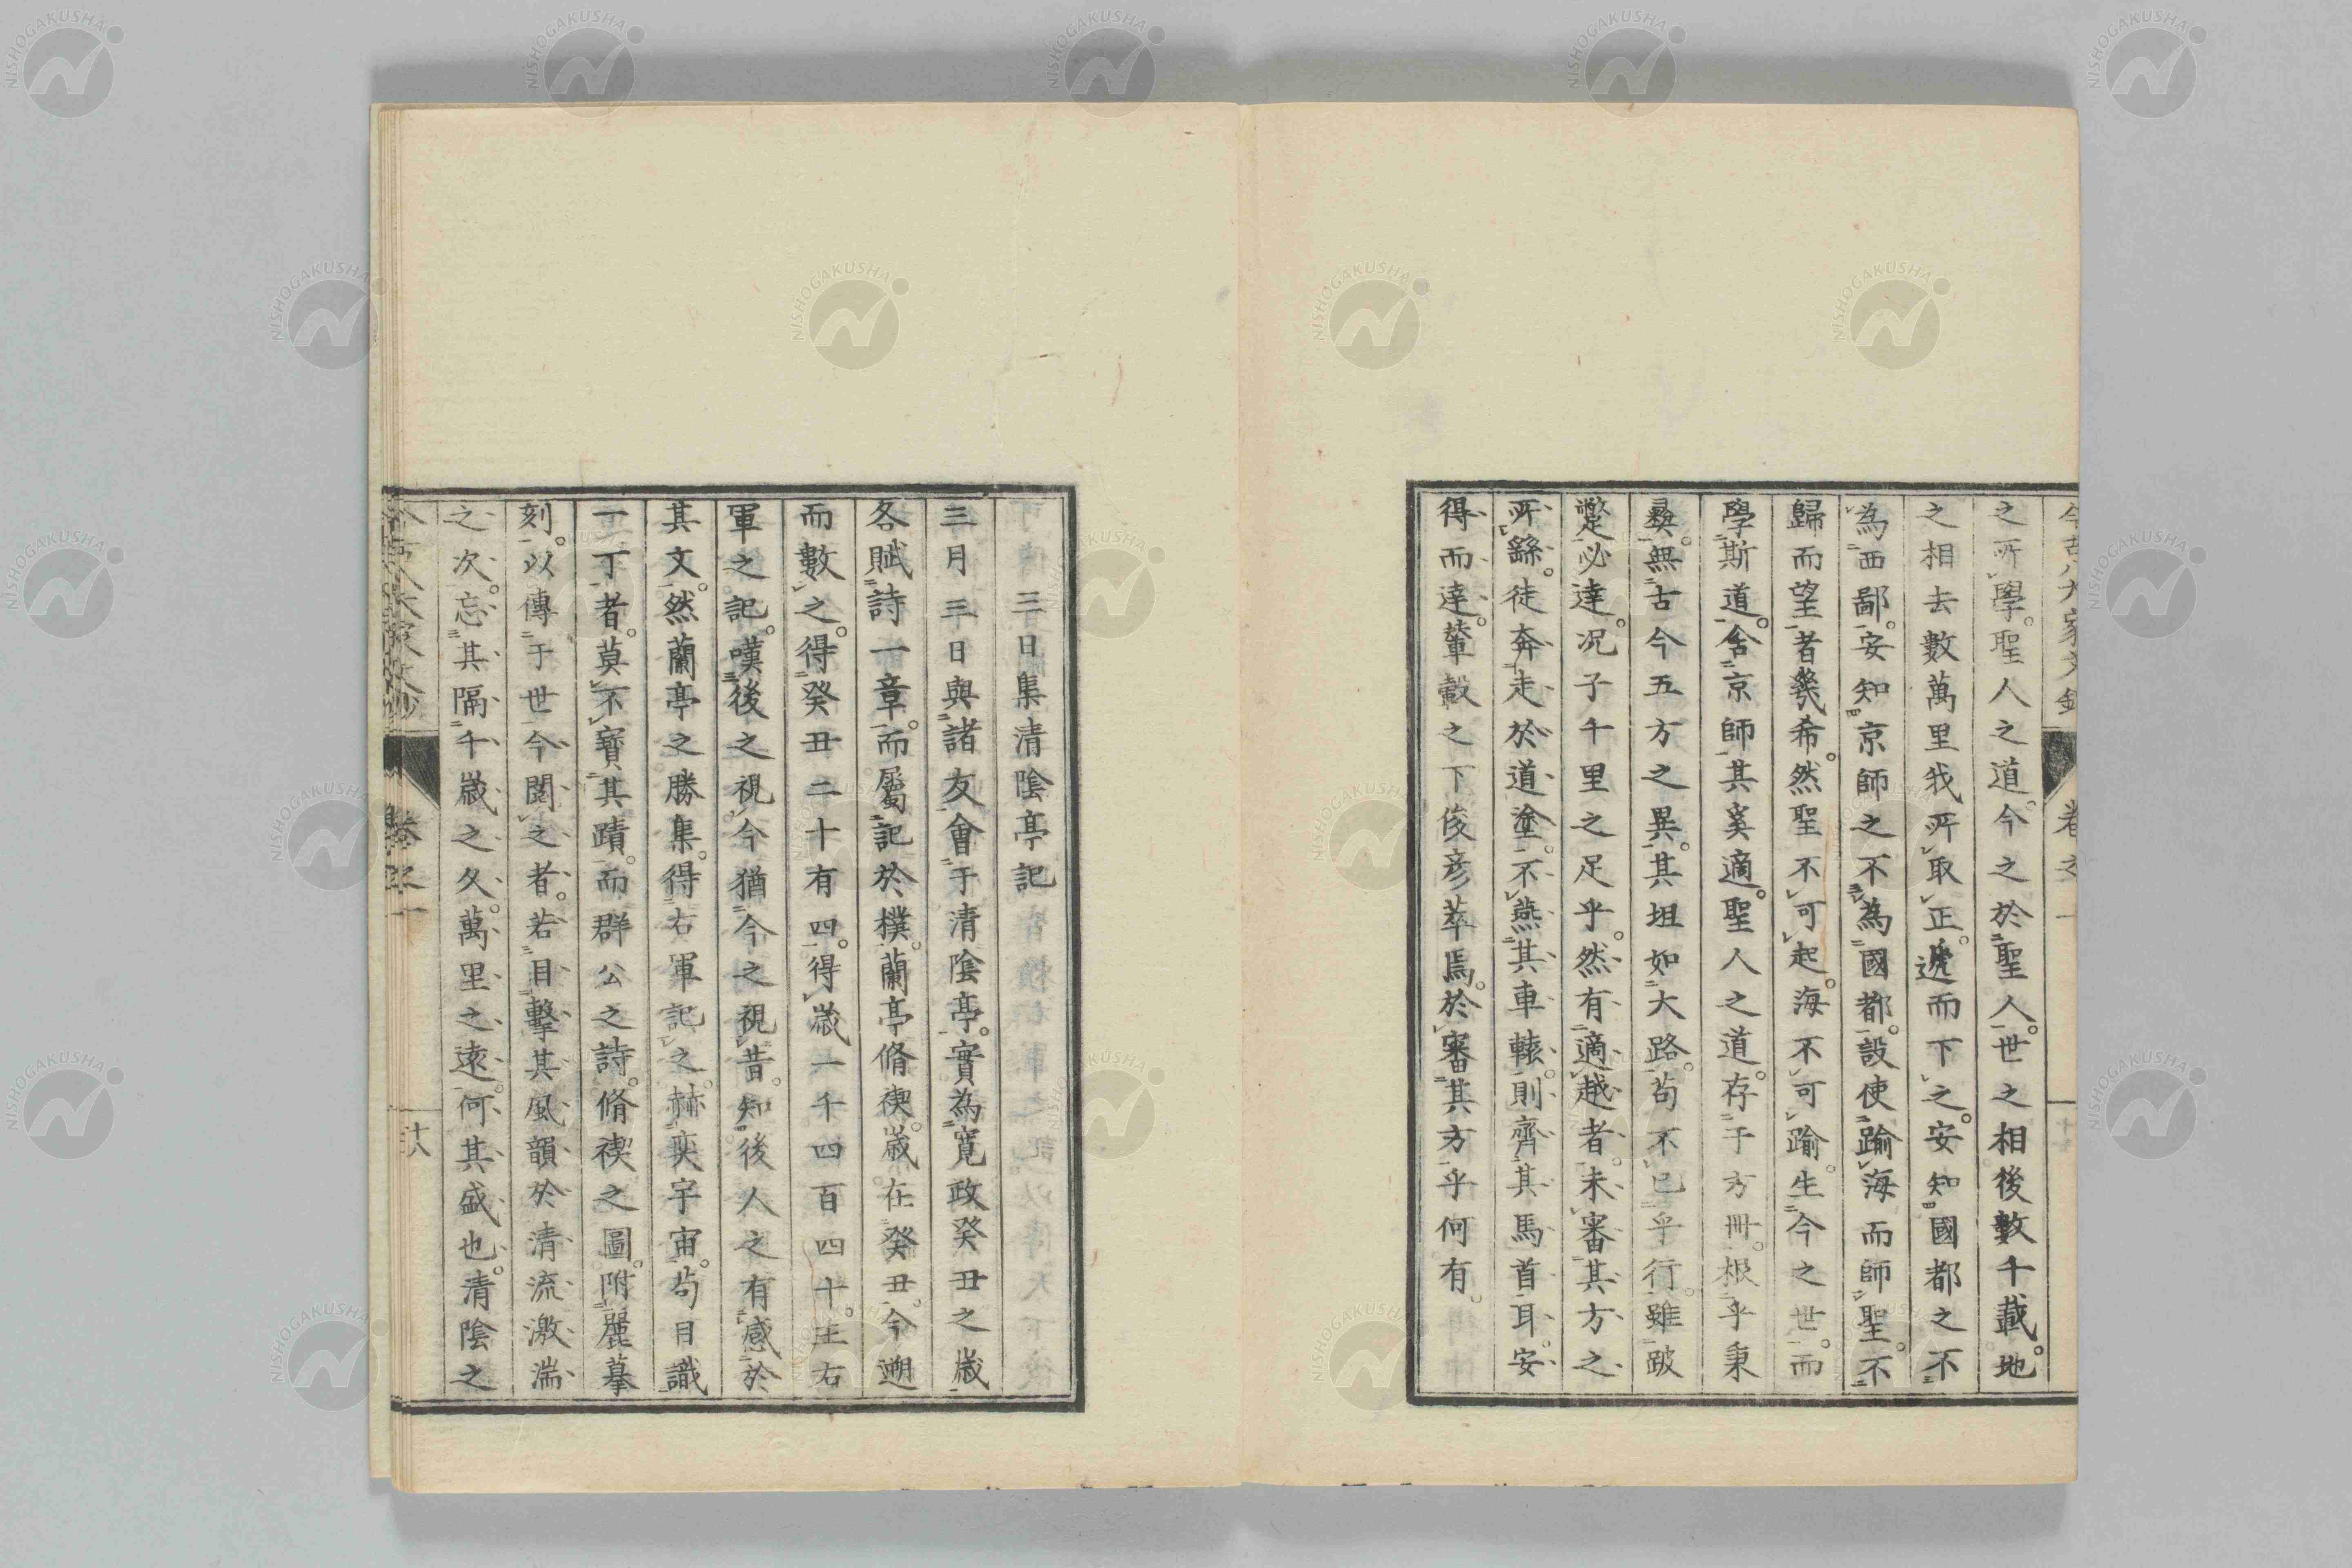 之所學。聖人之道。今之於聖人。世之相後數千載。地
之相去數萬里。我所取正。遞而下之。安知國都之不
為西鄙。安知京師之不為國都。設使踰海而師聖。不
歸而望者幾希。然聖不可起。海不可踰。生今之世。而
學斯道。舍京師其奚適。聖人之道。存于方冊。根乎秉
彝。無古今五方之異。其坦如大路。苟不已乎行。雖跛
躄必達。況子千里之足乎。然有適越者。未審其方之
所繇。徒奔走於道塗。不燕其車轅。則齊其馬首耳。安
得而達。輦轂之下俊彥萃焉。於審其方乎何有。
三日集清陰亭記
三月三日與諸友會于清陰亭。實為寬政癸丑之歲
各賦詩一章。而屬記於樸。蘭亭脩禊。歲在癸丑。今遡
而數之。得癸丑二十有四。得歲一千四百四十。王右
軍之記。嘆後之視今猶今之視昔。知後人之有感於
其文。然蘭亭之勝集。得右軍記之。赫奕宇宙。苟目識
一丁者。莫不寶其蹟。而群公之詩。脩禊之圖。附麗摹
刻。以傳于世今閱之者。若目擊其風韻於清流激湍
之次。忘其隔千歲之久。萬里之遠。何其盛也。清陰之
卷之十
十八
NISHOGAKUSHA